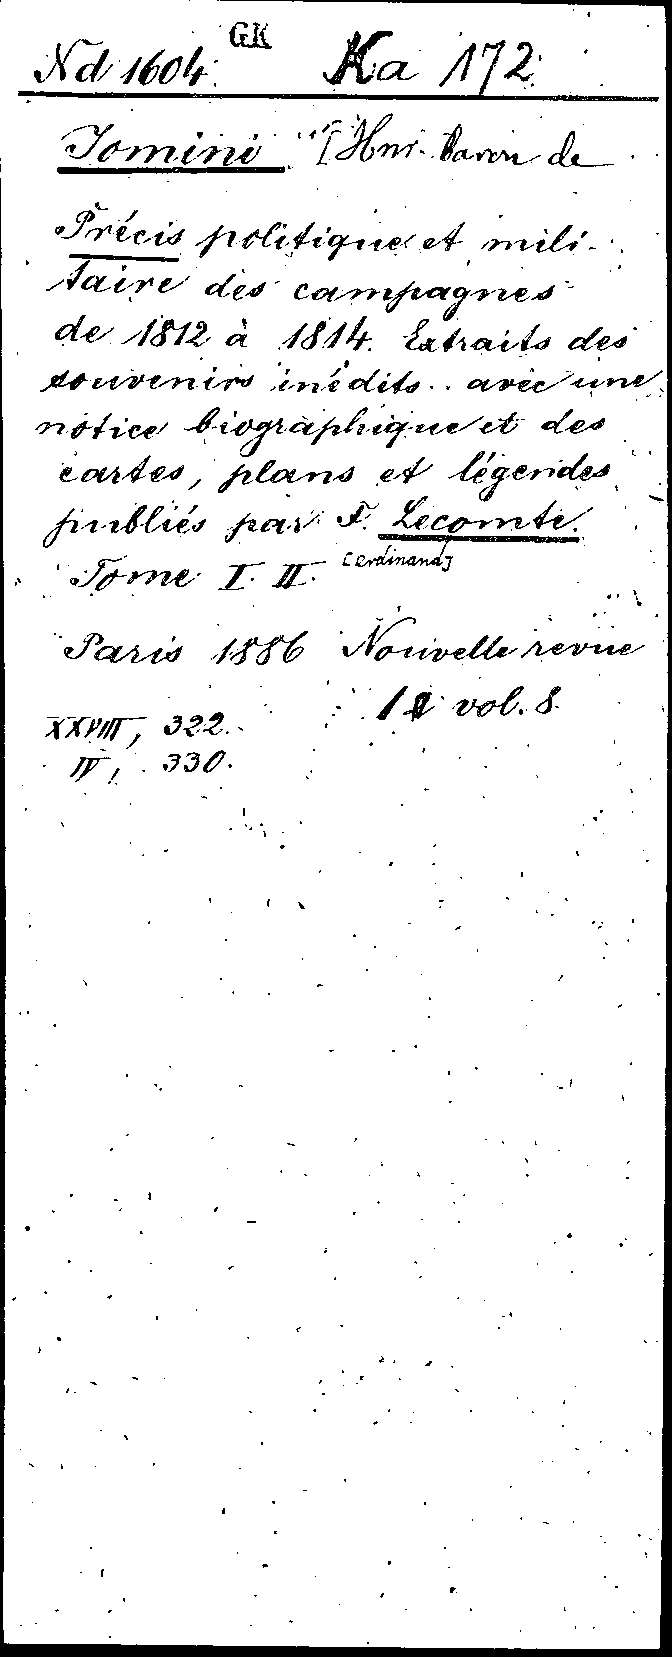 Nd 1604. GK Ka 172
Jomini [Hnr. Baron de
Précis politique et mili-
taire des campagnes
de 1812 à 1814. Extraits des
souvenirs inédits.. avec une
notice biographique et des
cartes, plans et légendes
publiés par F. Lecomte.
[erdinand]
Tome I. II.
Paris 1886 Nouvelle revue
vol. 8.
XXVIII, 322.
IV, 330.